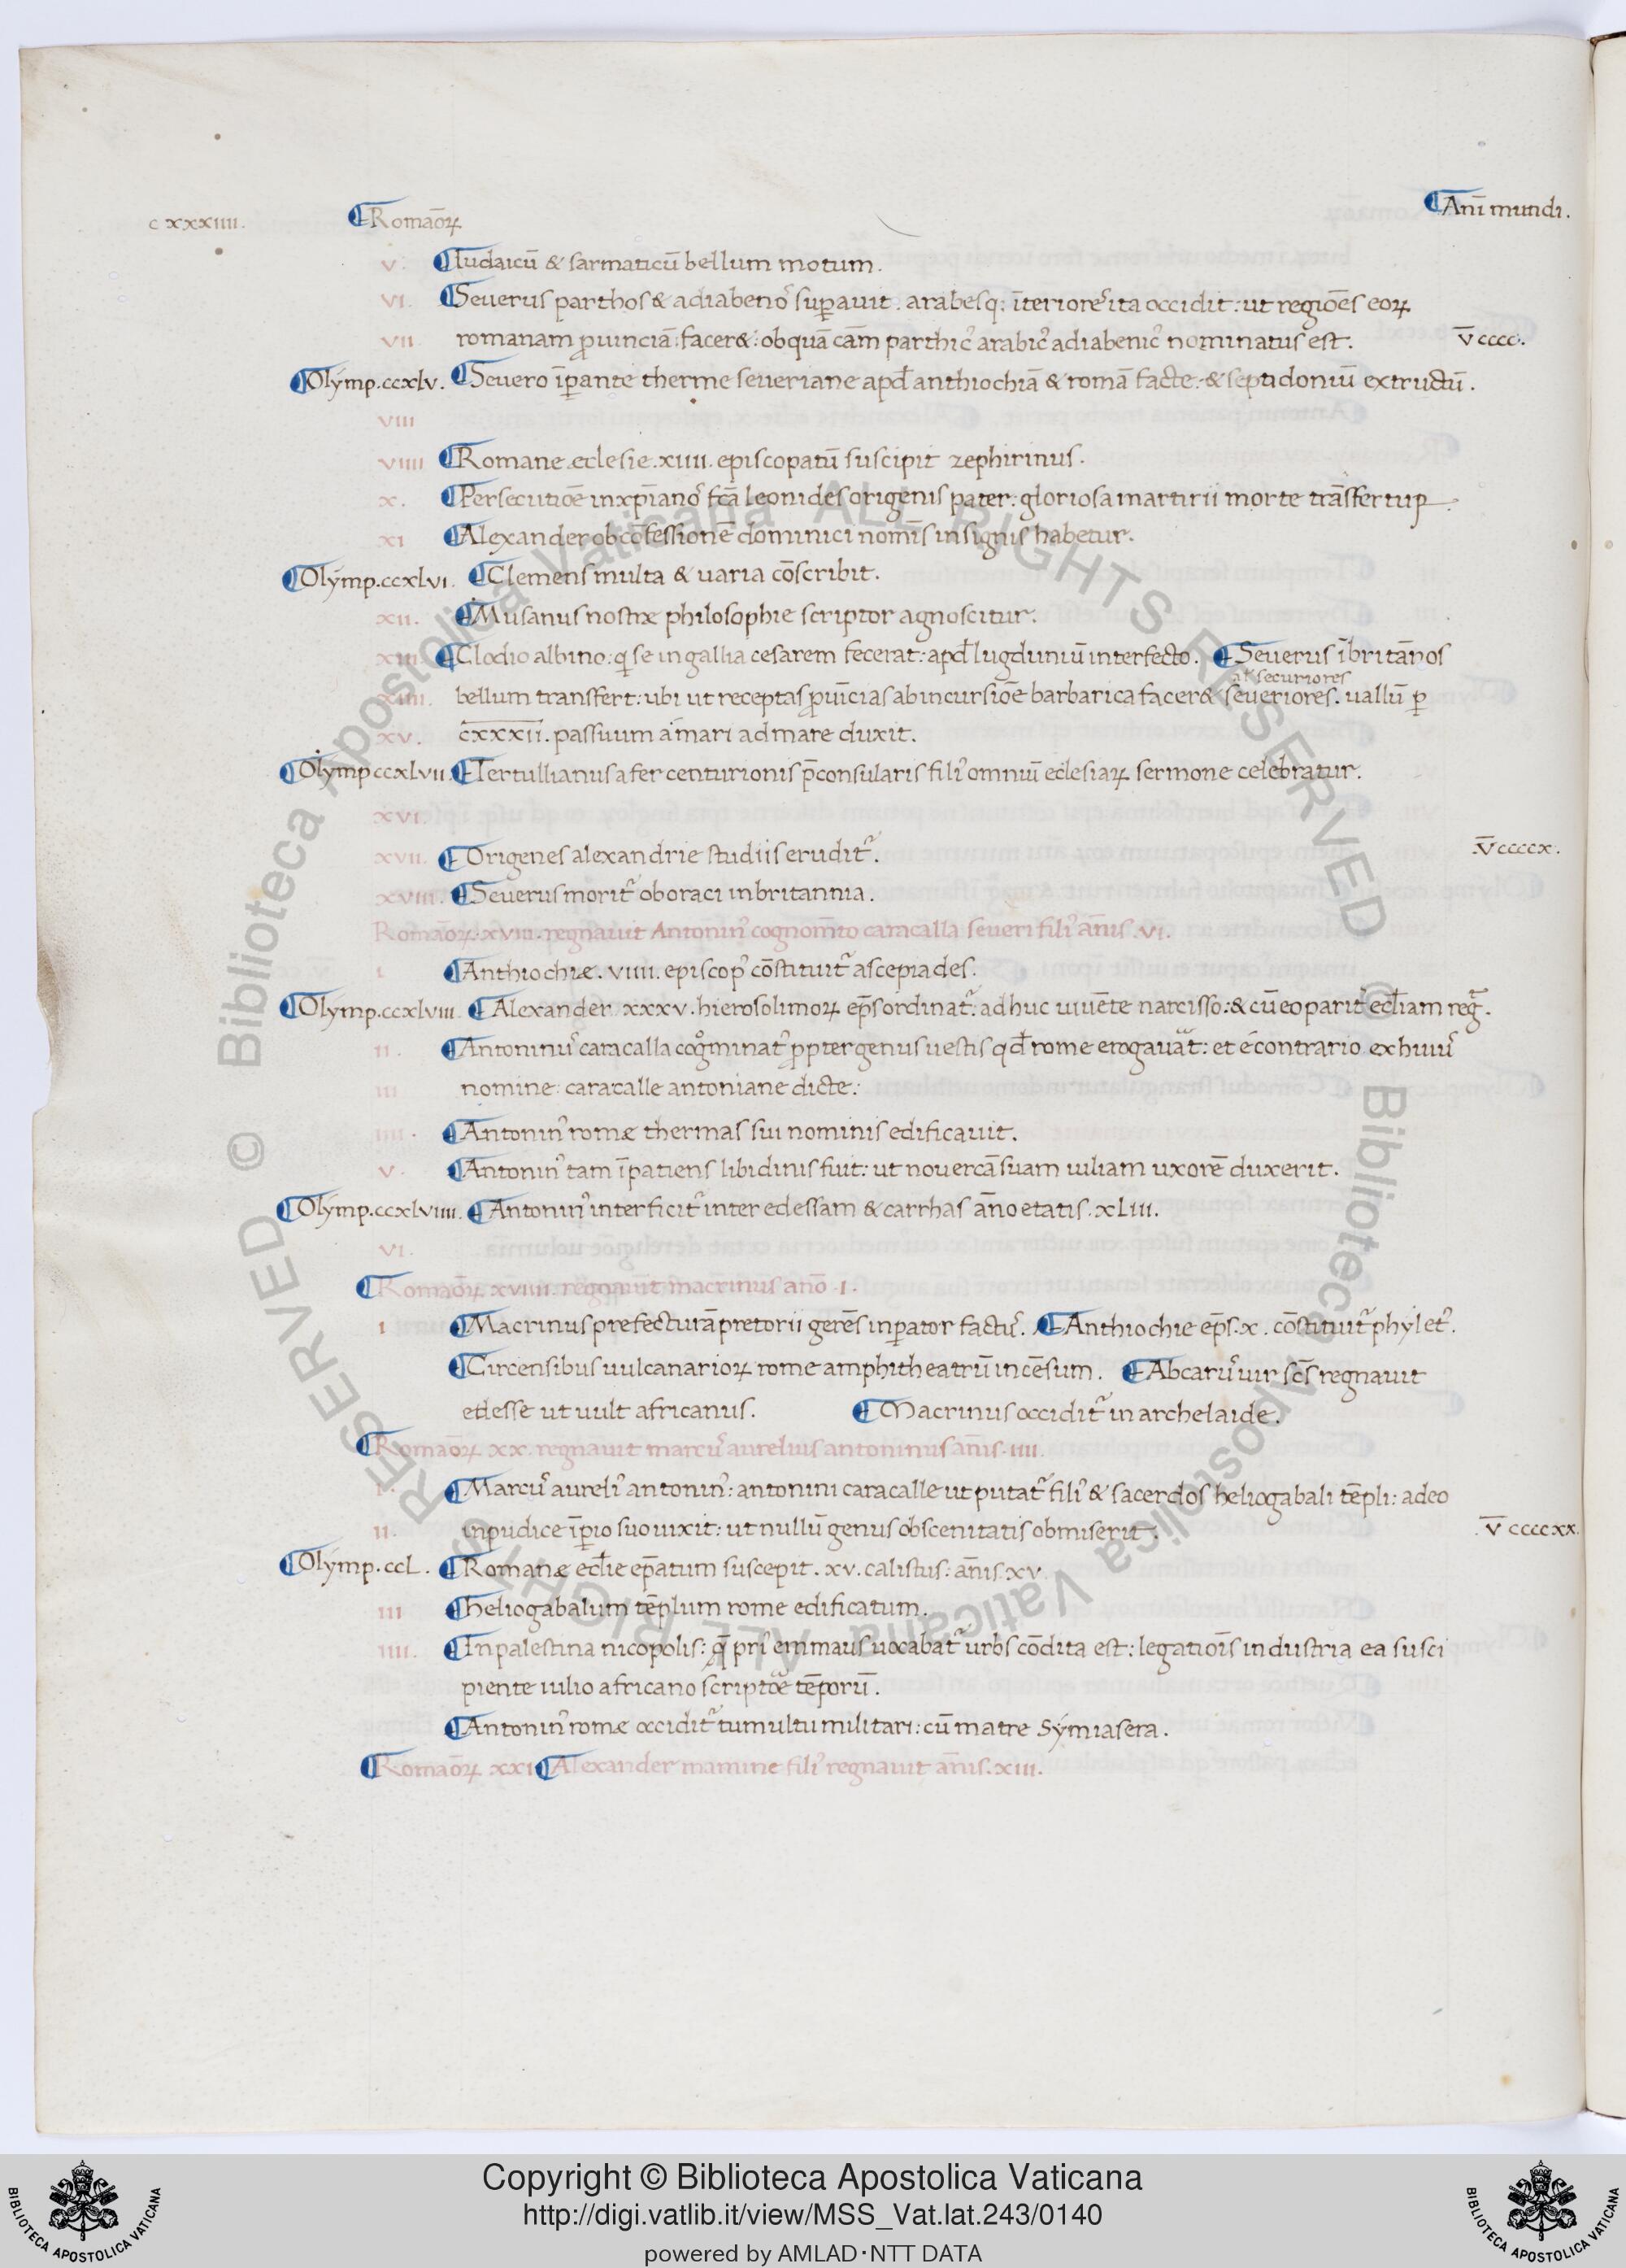 c xxxiiii.
Romāoꝝ
Ani̅ mundi.
v. Iudaicū & sarmaticū bellum motum.
vi. Seuerus parthos & adiabenoꝰ suꝑauit. arabesq; īterioreꝰ ita occidit: ut regiōes eoꝝ
vii. romanam ꝓuinciā: facer&: ob quā cām parthicꝰ arabicꝰ adiabenicꝰ nominatus est. v̅cccc.
Olymp. ccxlv. Seuero īꝑante therme seueriane apđ anthiochiā & romā facte: & septidoniū extructū.
viii
viiii Romane eclesie .xiiii. episcopatū suscipit zephirinus.
x. Persecutiōe in xp̄ianoꝰ fc̄a leonides origenis pater: gloriosa martirii morte trāsfertur.
xi Alexander ob cōfessionē dominici nom̄is insignis habetur.
Olymp. ccxlvi. Clemens multa & uaria cōscribit.
xii. Musanus nostræ philosophie scriptor agnoscitur.
xiii. Clodio albino: q̄ se in gallia cesarem fecerat: apđ lugduniū interfecto. Seuerus ī britānos
al' securiores
xiiii. bellum transfert: ubi ut receptas ꝓuīcias ab incursiōe barbarica facer& seueriores. uallū ꝑ
xv. c̅x̅x̅x̅i̅i̅. passuum a mari ad mare duxit.
Olymp ccxlvii. Tertullianus afer centurionis p̄consularis filiꝰ omniū eclesiaꝝ sermone celebratur.
xvi.
xvii. Origenes alexandrie studiis eruditr̄. v̅ccccx.
xviii. Seuerus moritr̄ eboraci in britannia.
Romāoꝝ .xviii. regnauit Antoninꝰ cognom̄to caracalla seueri filiꝰ an̄is .vi.
i Anthiochiæ. viiii. episcopꝰ cōstituitr̄ ascepiades.
Olymp. ccxlviii. Alexander xxxv. hierosolimoꝝ ep̄s ordinatr̄. adhuc uiuēte narcisso: & cū eo paritꝰ eccl̄iam regr̄.
ii. Antoninꝰ caracalla cogn̄minatꝰ ꝓpter genus uestis qđ rome erogauat: et e contrario ex huiꝰ
iii nomine: caracalle antoniane dicte.
iiii. Antoninꝰ romæ thermas sui nominis edificauit.
v. Antoninꝰ tam īpatiens libidinis fuit: ut nouercā suam iuliam uxorē duxerit.
Olymp. ccxlviiii. Antoninꝰ interficitr̄ inter edessam & carrhas an̄o etatis .xLiii.
vi.
Romāoꝝ xviiii. regnauit macrinus anō .i.
i Macrinus prefecturā pretorii gerēs inꝑator factuꝰ. Anthiochie ep̄s .x. cōstituitr̄ phyletꝰ.
Circensibus uulcanarioꝝ rome amphitheatrū incēsum. Abcaruꝰ uir sc̄s regnauit
edesse ut uult africanus. Macrinus occiditr̄ in archelaide.
Romāoꝝ xx. regnauit marcuꝰ aurelius antoninus an̄is .iiii.
i. Marcuꝰ aureliꝰ antoninꝰ: antonini caracalle ut putatr̄ filiꝰ & sacerdos heliogabali tēpli: adeo
ii. inpudice īꝑio suo uixit: ut nullū genus obscenitatis obmiserit. v̅ccccxx.
Olymp. ccL. Romanæ eccl̄ie ep̄atum suscepit. xv. calistus: an̄is .xv.
iii heliogabalum tēplum rome edificatum.
iiii. In palestina nicopolis: q̄ priꝰ emmaus uocabatr̄ urbs cōdita est: legatiōis industria ea susci
piente iulio africano scriptore tēporū.
Antoninꝰ romæ occiditr̄ tumultu militari: cū matre Symiasera.
Romāoꝝ xxi Alexander mamine filiꝰ regnauit an̄is .xiii.
© Biblioteca Apostolica Vaticana ALL RIGHTS RESERVED
© Biblioteca Apostolica Vaticana ALL RIGHTS RESERVED
BIBLIOTECA APOSTOLICA VATICANA
Copyright © Biblioteca Apostolica Vaticana
http://digi.vatlib.it/view/MSS_Vat.lat.243/0140
powered by AMLAD·NTT DATA
BIBLIOTECA APOSTOLICA VATICANA